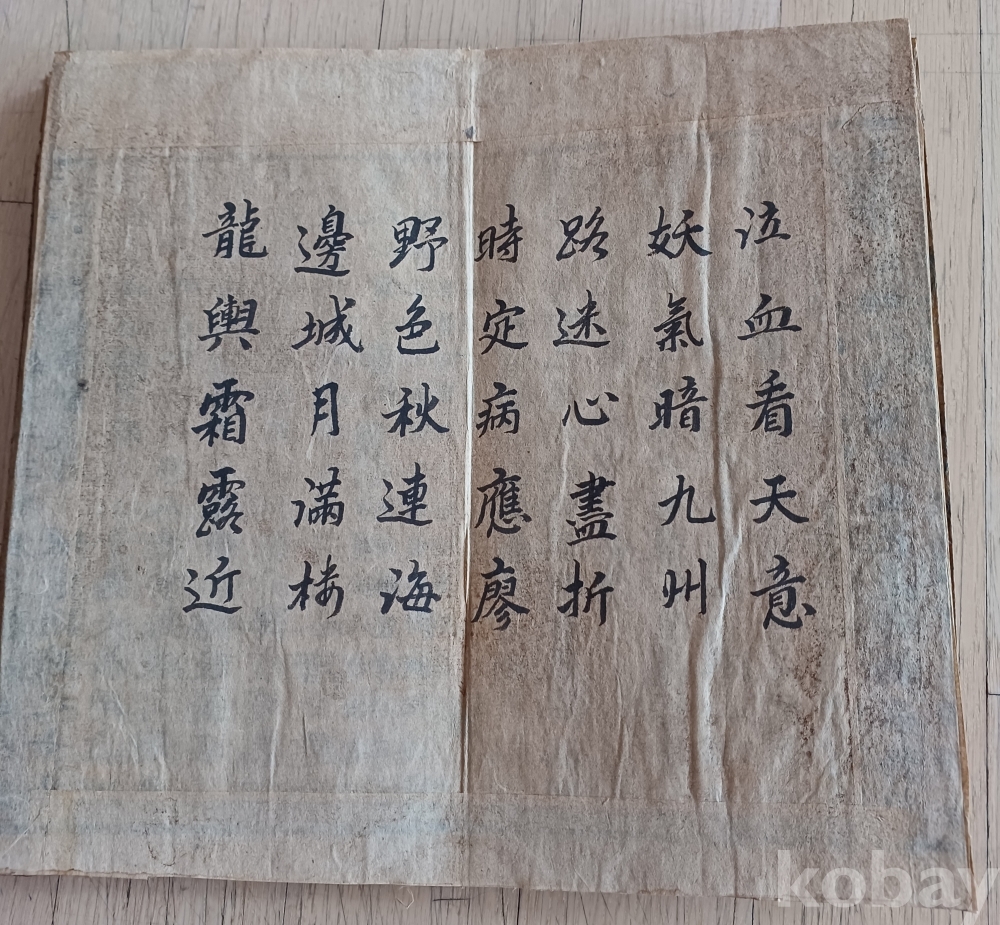 泣血看天意
妖氣暗九州
路迷心盡折
時定病應廖
野色秋連海
邊城月滿楼
龍輿霜露近
kobay